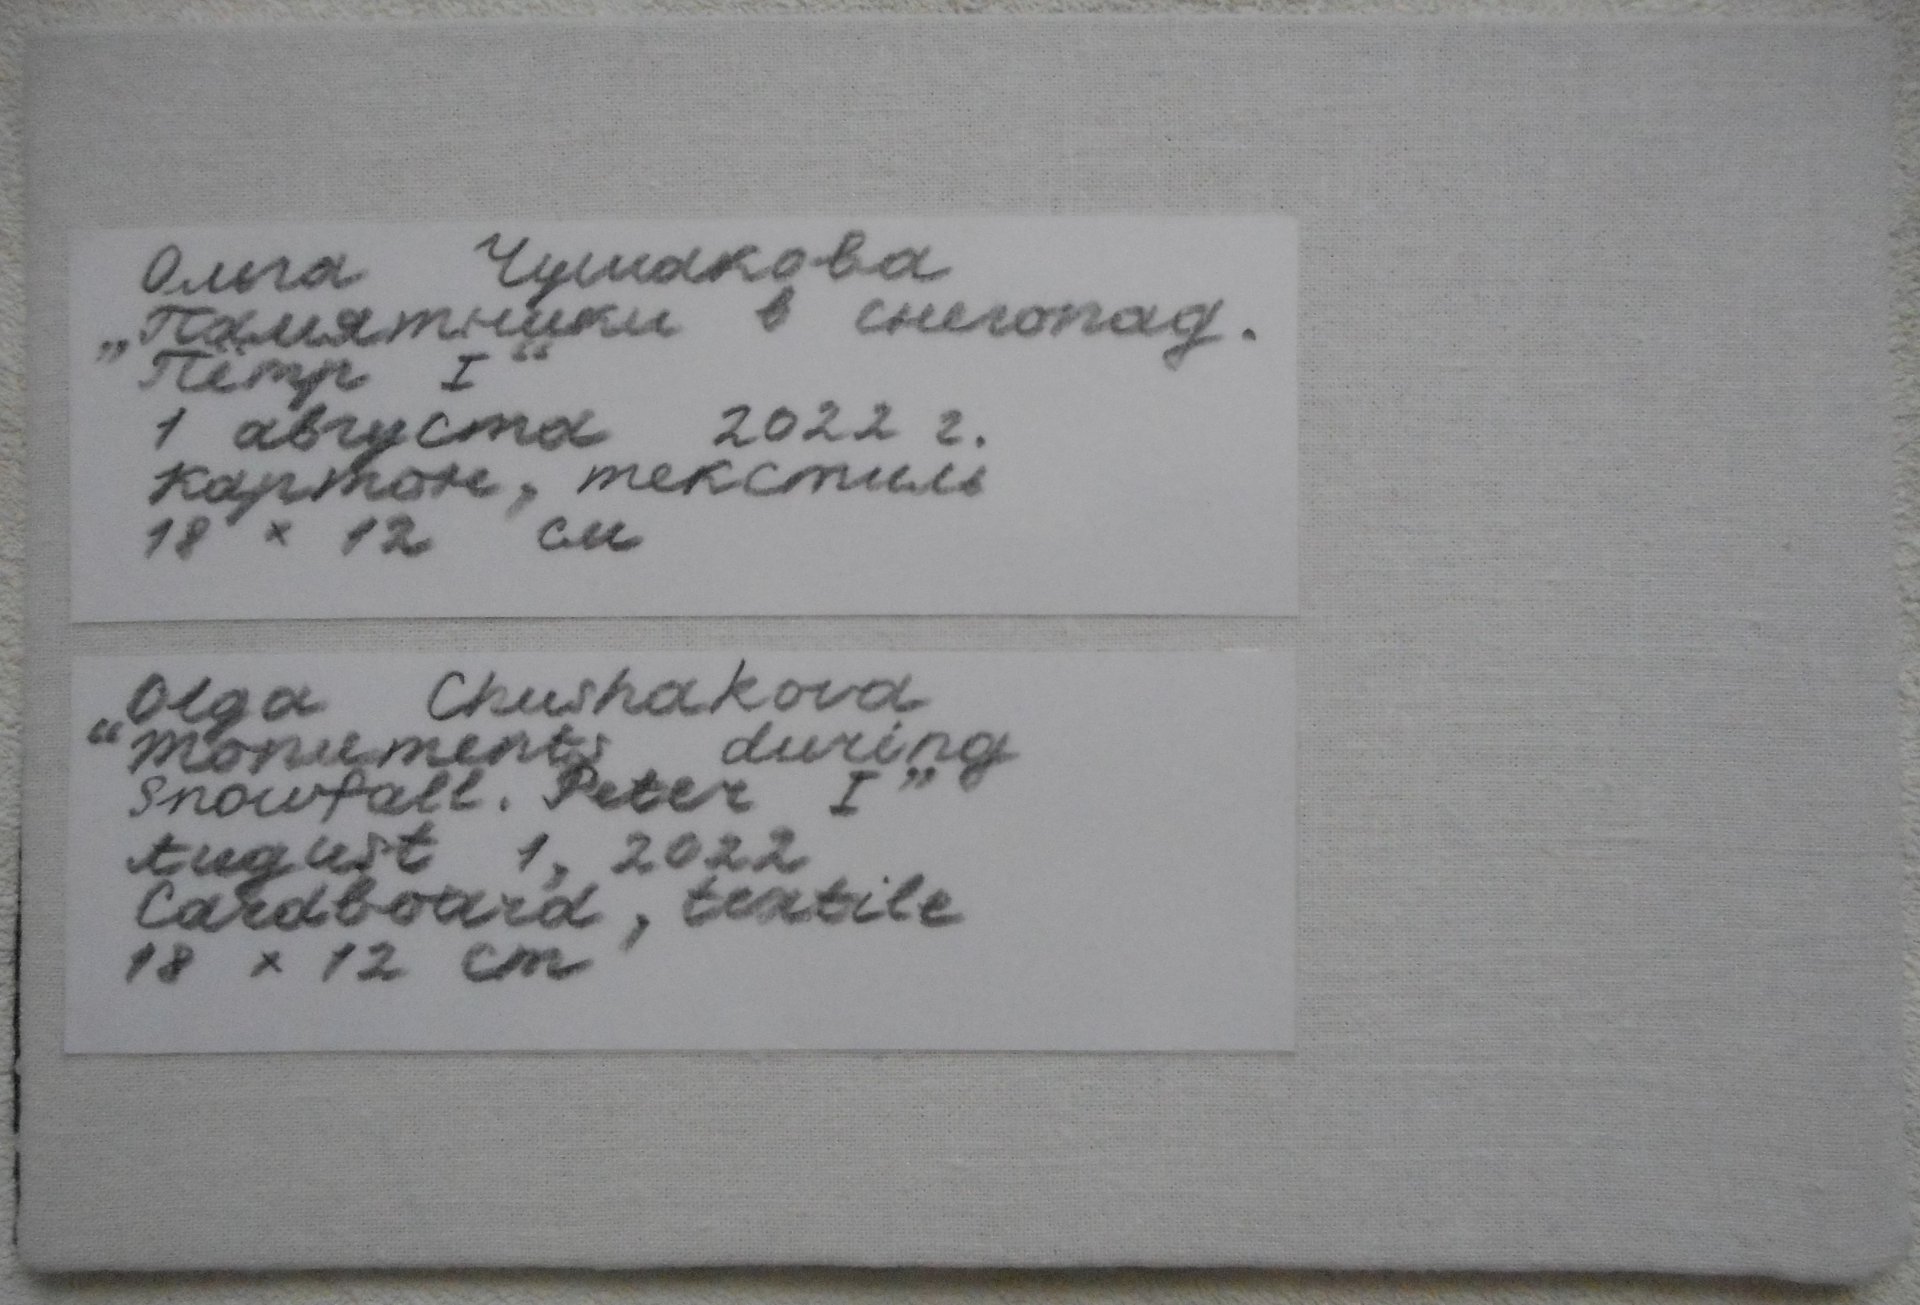 Ольга Чушакова
„Памятники в снегопад.
Пётр I“
1 августа 2022 г.
Картон, текстиль
18 × 12 см
Olga Chushakova
“Monuments during
Snowfall. Peter I”
August 1, 2022
Cardboard, textile
18 × 12 cm